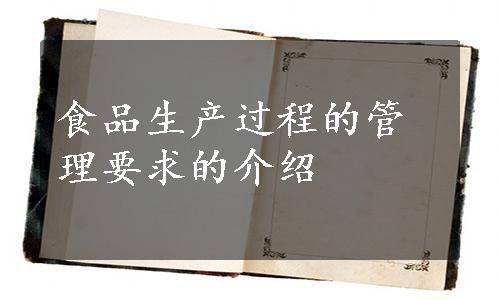 食品生产过程的管
理要求的介绍